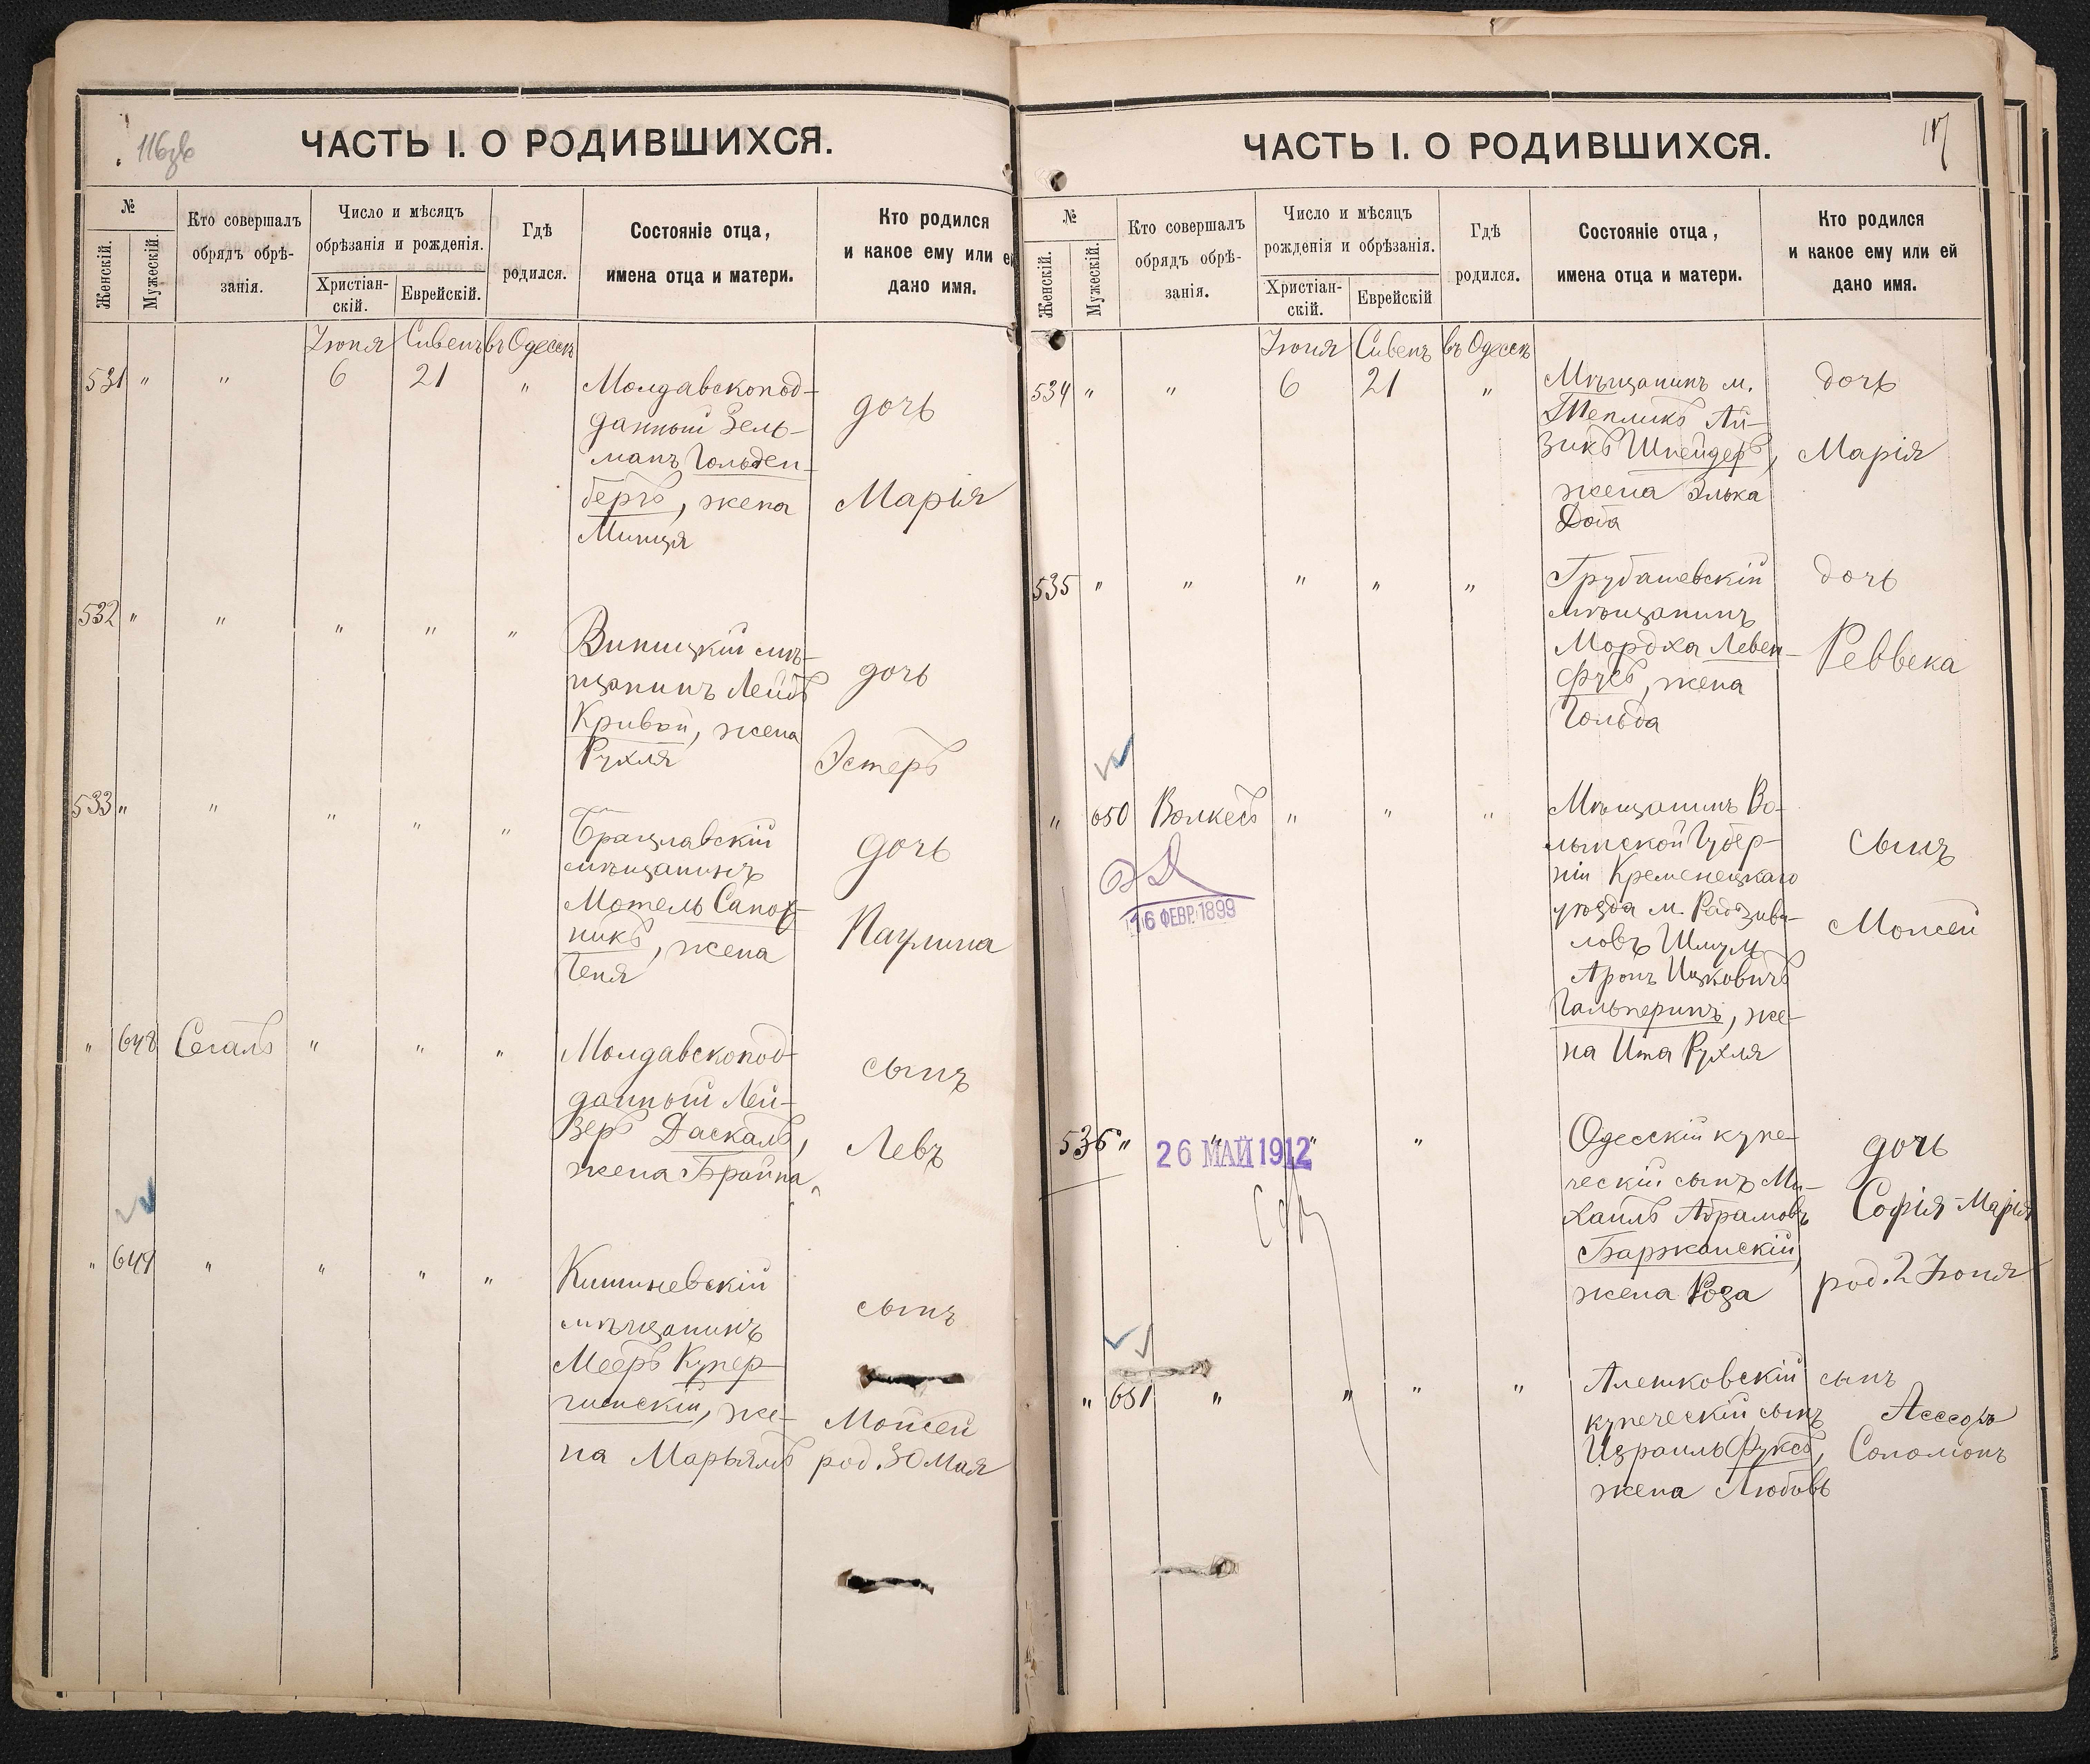 116об
ЧАСТЬ I. О РОДИВШИХСЯ.
№
Женскій.
Мужескій.
Кто совершалъ
обрядъ обрѣ-
занія.
Число и мѣсяцъ
обрѣзанія и рожденія.
Христіан-
скій.
Еврейскій.
Гдѣ
родился.
Состояніе отца,
имена отца и матери.
Кто родился
и какое ему или ей
дано имя.
Іюня Сивенъ въ Одессѣ
531 " " 6 21 "
Молдавскопод-
данный Зель-
манъ Гольден-
бергъ, жена
Минця
дочь
Марія
532 " " " " "
Виницкій мѣ-
щанинъ Лейбъ
Кривой, жена
Рухля
дочь
Эстеръ
533 " " " " "
Брацлавскій
мѣщанинъ
Мотель Сапож-
никъ, жена
Геня
дочь
Паулина
" 648 Сегалъ " " "
Молдавскопод-
данный Лей-
зеръ Даскалъ,
жена Брайна
сынъ
Левъ
" 649 " " " "
Кишиневскій
мѣщанинъ
Мееръ Купер-
чинскій, же-
на Марьямъ
сынъ
Мойсей
род. 30 Мая
117
ЧАСТЬ I. О РОДИВШИХСЯ.
№
Женскій.
Мужескій.
Кто совершалъ
обрядъ обрѣ-
занія.
Число и мѣсяцъ
рожденія и обрѣзанія.
Христіан-
скій.
Еврейскій
Гдѣ
родился.
Состояніе отца,
имена отца и матери.
Кто родился
и какое ему или ей
дано имя.
Іюня Сивенъ въ Одессѣ
534 " " 6 21 "
Мѣщанинъ м.
Тепликъ Ай-
зикъ Шнейдеръ,
жена Элька
дочь
Марія
535 " " " " "
Грубашевскій
мѣщанинъ
Мордха Левен-
фусъ, жена
Гольда
дочь
Реввека
" 650 Волкесъ " " "
16 ФЕВР. 1899
Мѣщанинъ Во-
лынской Губер-
ніи Кременецкаго
уѣзда м. Радзиви-
ловъ Шмуль
Аронъ Ицковичъ
Гальперинъ, же-
на Ита Рухля
сынъ
Мойсей
536 " " " "
26 МАЙ 1912
Одесскій купе-
ческій сынъ Ми-
хаилъ Абрамовъ
Баржанскій,
жена Роза
дочь
Софія-Марія
род. 2 Іюня
" 651 " " " "
Алешковскій
купеческій сынъ
Израиль Фуксъ,
жена Любовь
сынъ
Соломонъ